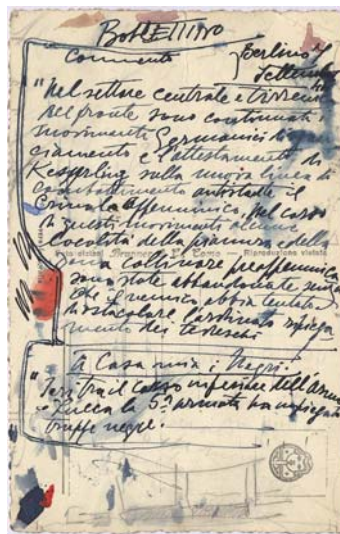 BOLLETTINO
Commento
Berlino 5
Settembre
"Nel settore centrale e tirreno
del fronte sono continuati
movimenti Germanici di
ciamento e l'attestamento di
Kesserling sulla nuova linea di
combattimento antistante il
crinale appenninico. Nel corso
di questi movimenti alcune
località della pianura e della
zona collinare preappenninica
sono state abbandonate senza
che il nemico abbia tentato
di ostacolare l'ordinato ripiega
mento dei tedeschi
Riproduzione vietata
A Casa mia i Negri.
"Ieri tra il corso inferiore dell'Arno
e Lucca la 5ª armata ha impiegato
truppe negre.